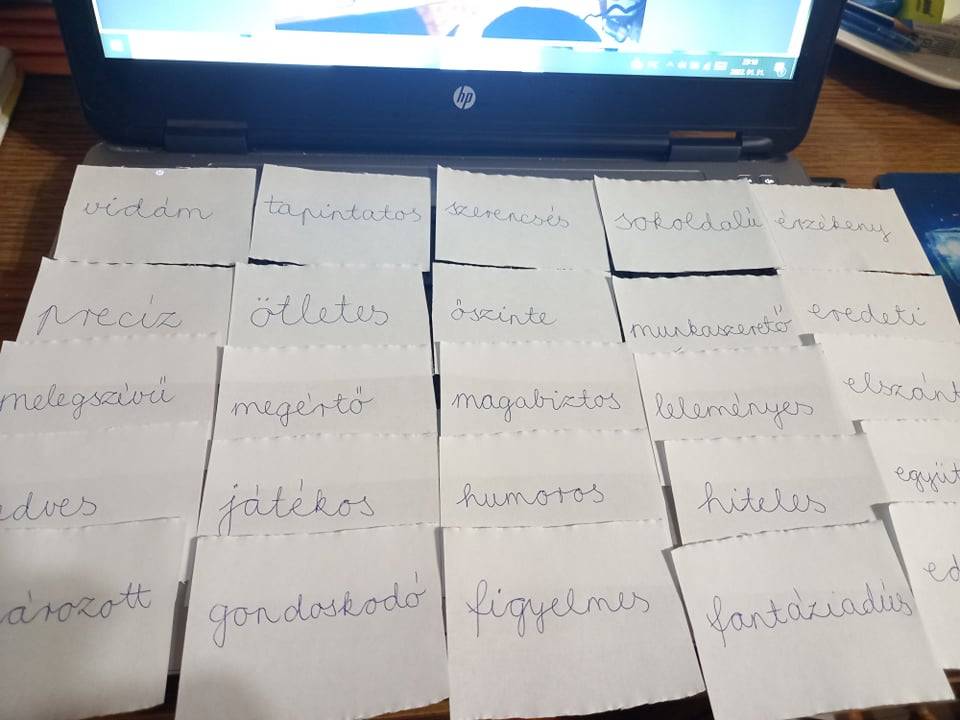 hp
vidám tapintatos szerencsés sokoldalú érzékeny
precíz ötletes őszinte munkaszerető eredeti
melegszívű megértő magabiztos leleményes elszánt
edves játékos humoros hiteles együt
ározott gondoskodó figyelmes fantáziadús ed